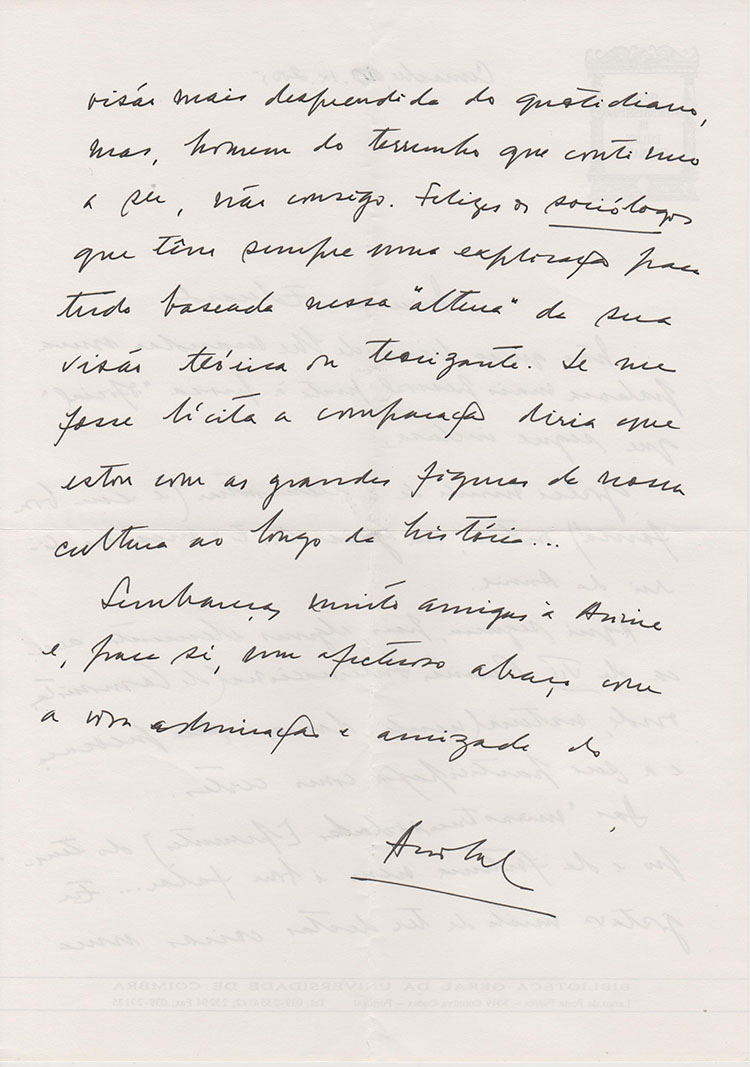 visão mais desprendida do quotidiano,
mas, homem do terrunho que continuo
a ser, não consigo. Felizes os sociólogos
que têm sempre uma explicação para
tudo baseada nessa "altura" da sua
visão teórica ou teorizante. Se me
fosse lícita a comparação diria que
estou com as grandes figuras da nossa
cultura ao longo da história...
Lembranças muito amigas à
e, para si, um afectuoso abraço com
a viva admiração e amizade do
Aníbal
BIBLIOTECA GERAL DA UNIVERSIDADE DE COIMBRA